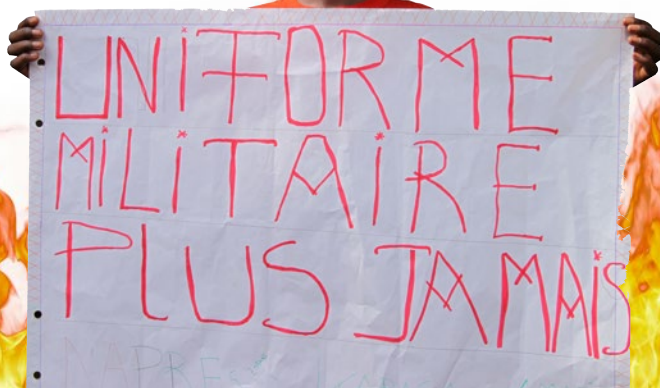 UNiFORME
MiLiTAiRE
PLUS JAMAiS